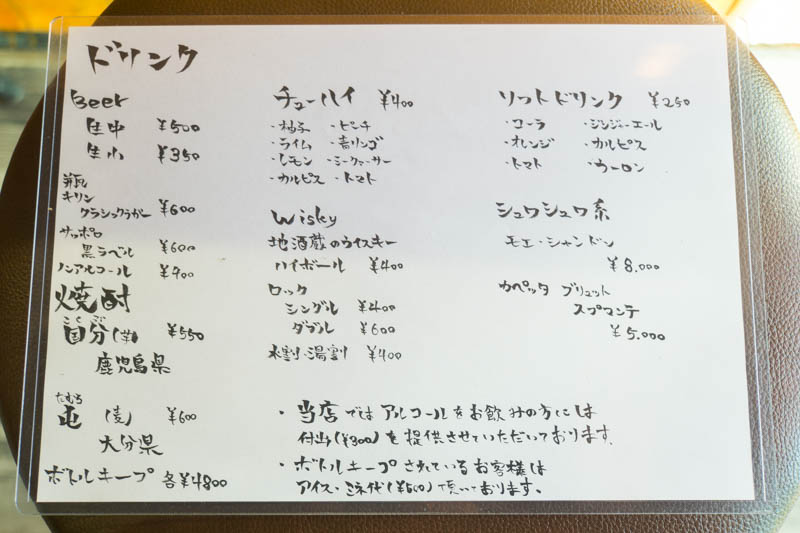 ドリンク
Beer
生中 ¥500
生小 ¥350
瓶
キリン
クラシックラガー ¥600
サッポロ
黒ラベル ¥600
ノンアルコール ¥400
焼酎
こくぶ
国分(芋) ¥550
鹿児島県
たむろ
屯 (麦) ¥600
大分県
ボトルキープ 各¥4800
チューハイ ¥400
・柚子 ・ピーチ
・ライム ・青リンゴ
・レモン ・シークヮーサー
・カルピス ・トマト
Wisky
地酒蔵のウイスキー
ハイボール ¥400
ロック
シングル ¥400
ダブル ¥600
水割・湯割 ¥400
ソフトドリンク ¥250
・コーラ ・ジンジャーエール
・オレンジ ・カルピス
・トマト ・ウーロン
シュワシュワ系
モエ・シャンドン
¥8.000
カペッタ ブリュット
スプマンテ
¥5.000
・当店ではアルコールをお飲みの方には
付出(¥300)を提供させていただいております。
・ボトルキープされているお客様は
アイス・ミネ代(¥500)頂いております。